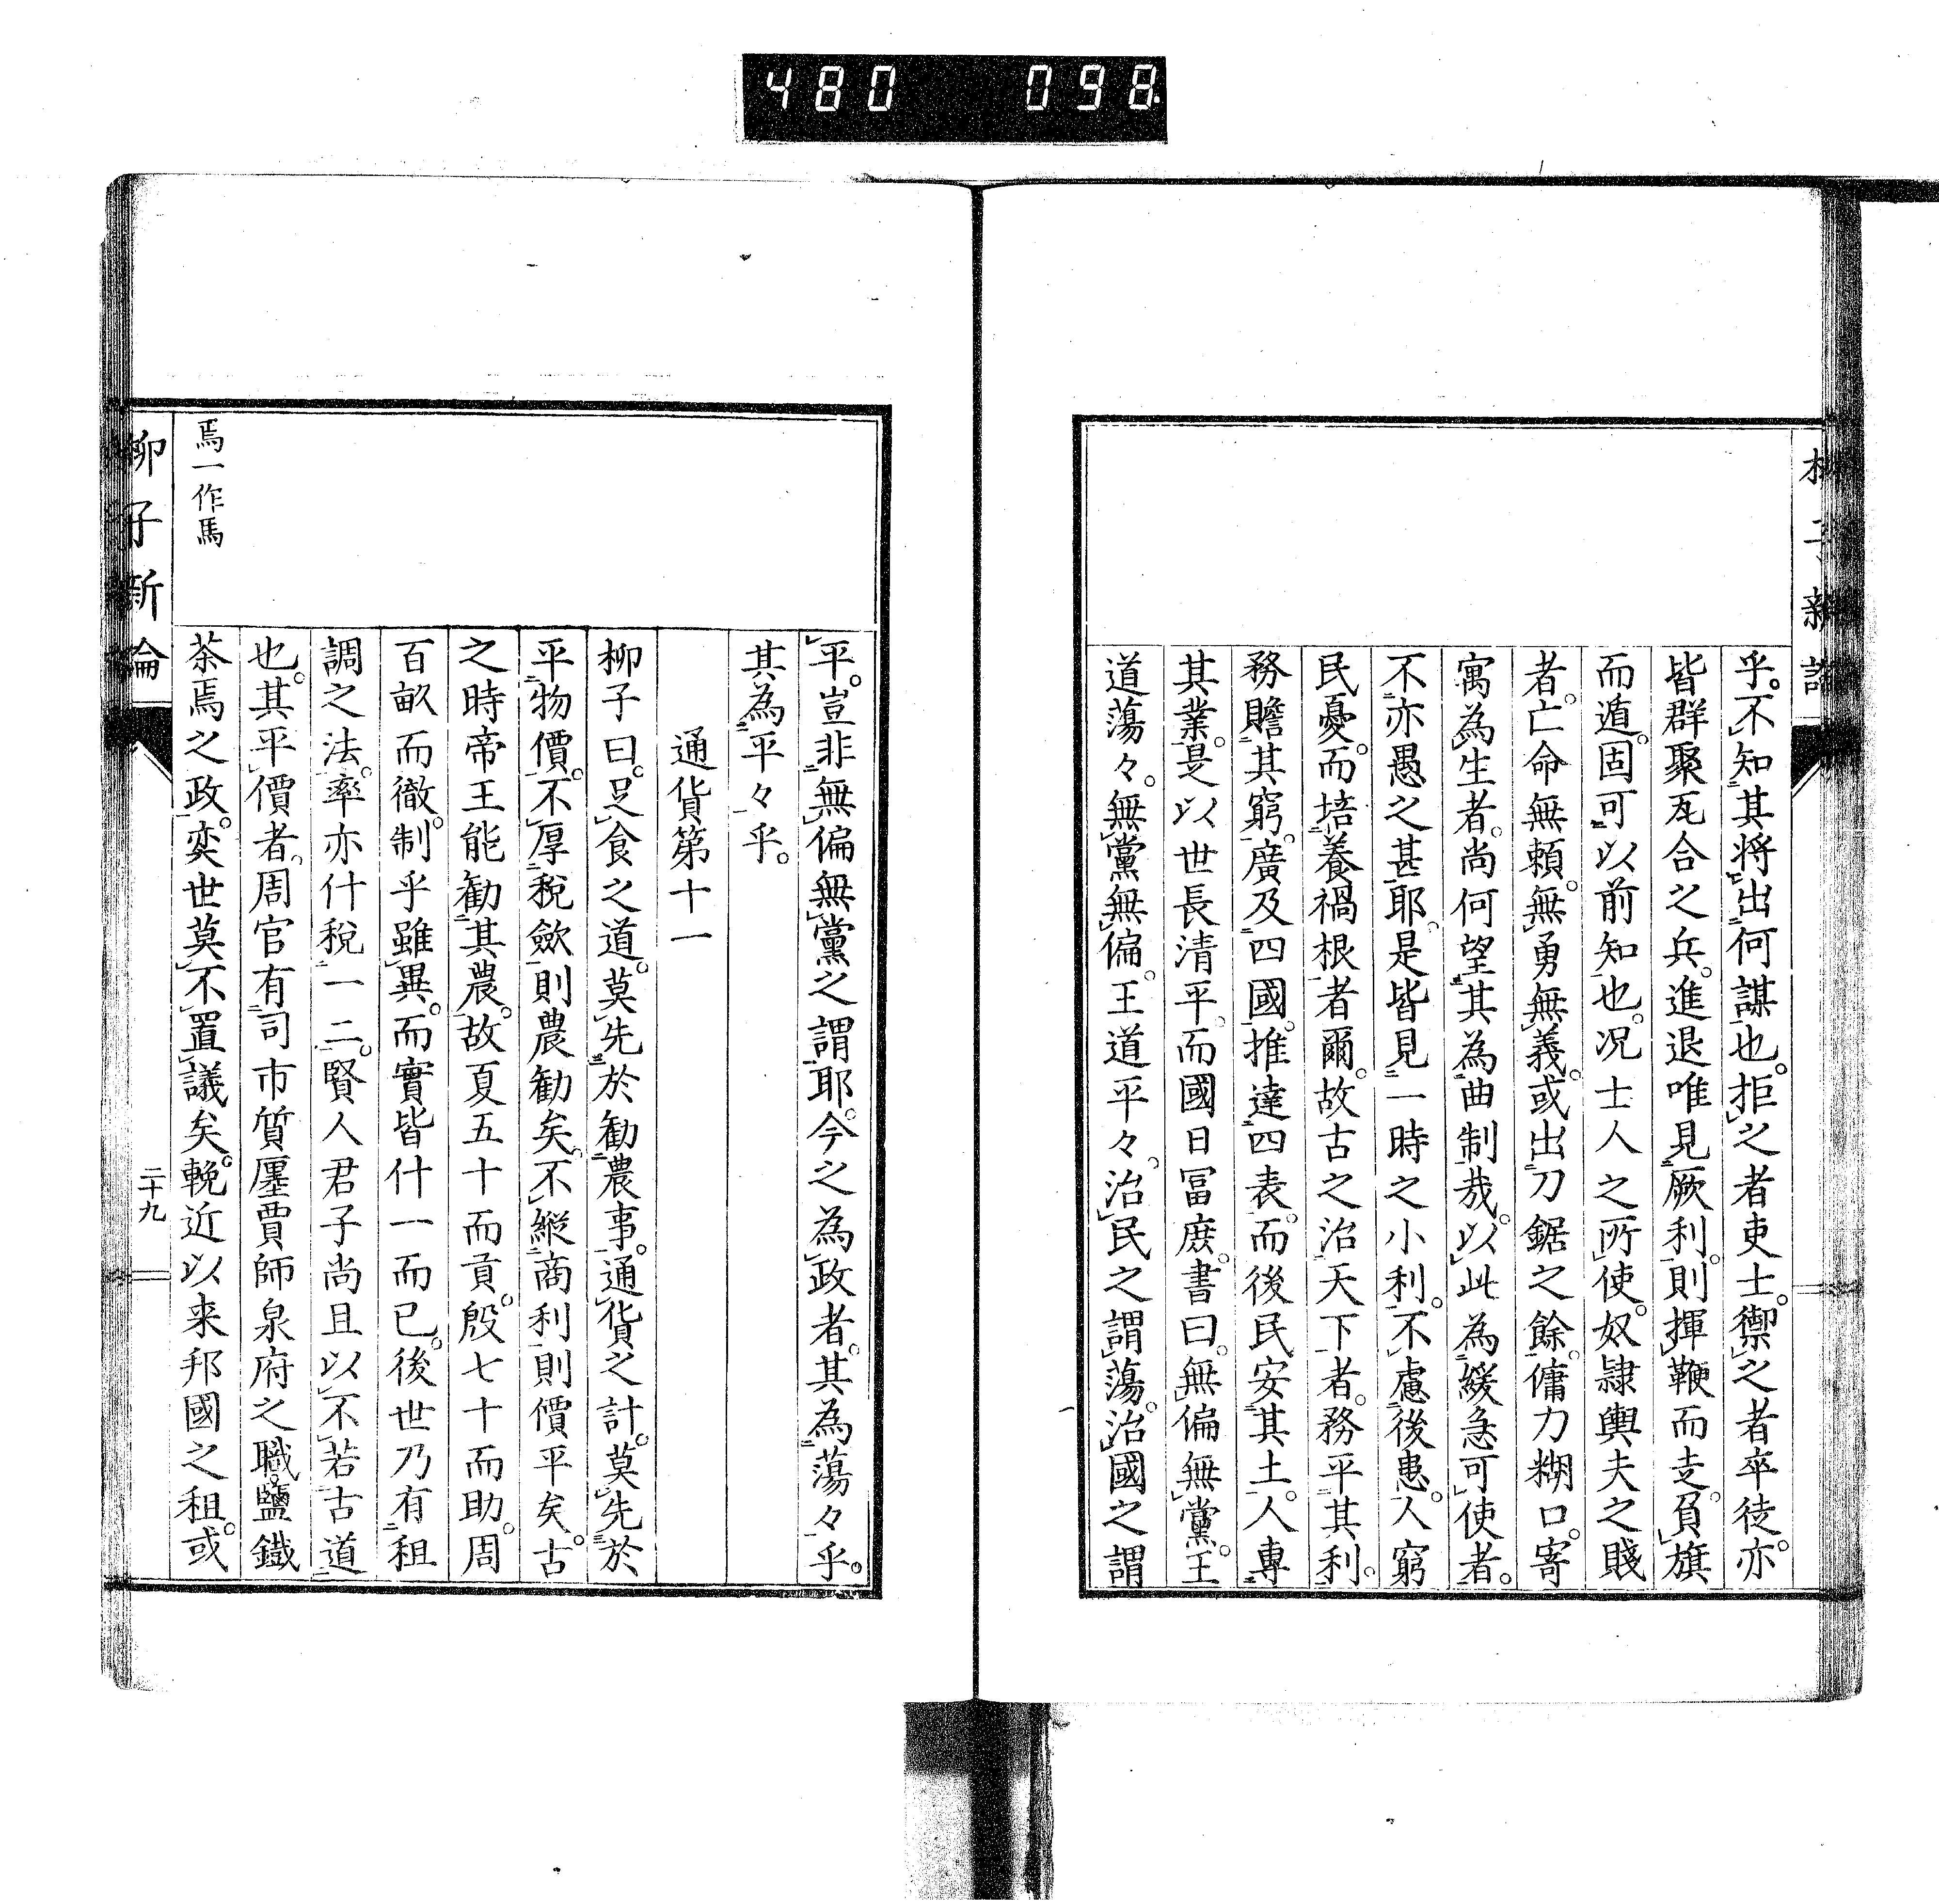 480 098
柳子新論
乎。不知其将出何謀也。拒之者吏士。禦之者卒徒。亦
皆群聚瓦合之兵。進退唯見厥利。則揮鞭而走。負旗
而遁。固可以前知也。况士人之所使。奴隷輿夫之賤
者。亡命無頼。無勇無義。或出刀鋸之餘。傭力糊口。寄
寓為生者。尚何望其為曲制哉。以此為緩急可使者。
不亦愚之甚耶。是皆見一時之小利。不慮後患。人窮
民憂。而培養禍根者爾。故古之治天下者。務平其利。
務贍其窮。廣及四國。推達四表。而後民安其土。人專
其業。是以世長清平。而國日冨庶。書曰。無偏無黨。王
道蕩々。無黨無偏。王道平々。治民之謂蕩。治國之謂
平。豈非無偏無黨之謂耶。今之為政者。其為蕩々乎。
其為平々乎。
通貨第十一
柳子曰。足食之道。莫先於勧農事。通貨之計。莫先於
平物價。不厚税斂則農勧矣。不縦商利則價平矣。古
之時帝王能勧其農。故夏五十而貢。殷七十而助。周
百畝而徹。制乎雖異。而實皆什一而已。後世乃有租
調之法。率亦什税一二。賢人君子尚且以不若古道
也。其平價者。周官有司市質廛賈師泉府之職。鹽鐵
茶焉之政。奕世莫不置議矣。輓近以来邦國之租。或
焉一作馬
柳子新論
二十九